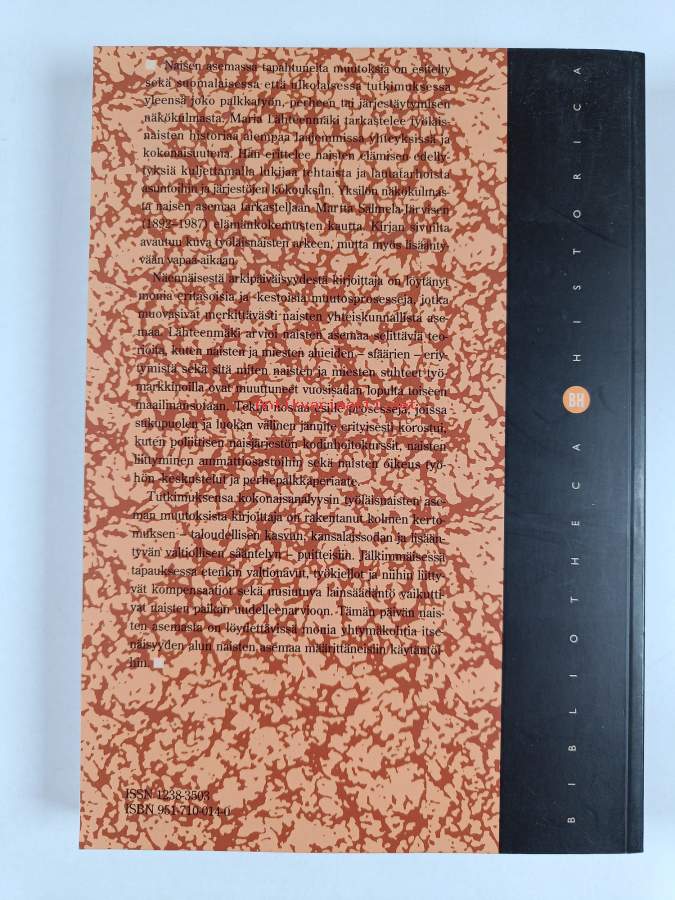 Naisen asemassa tapahtuneita muutoksia on esitelty
sekä suomalaisessa että ulkolaisessa tutkimuksessa
yleensä joko palkkatyön, perheen tai järjestäytymisen
näkökulmasta. Maria Lähteenmäki tarkastelee työläis-
naisten historiaa aiempaa laajemmissa yhteyksissä ja
kokonaisuutena. Hän erittelee naisten elämisen edelly-
tyksiä kuljettamalla lukijaa tehtaista ja lautatarhoista
asuntoihin ja järjestöjen kokouksiin. Yksilön näkökulmas-
ta naisen asemaa tarkastellaan Martta Salmela-Järvisen
(1892–1987) elämänkokemusten kautta. Kirjan sivuilta
avautuu kuva työläisnaisten arkeen, mutta myös lisäänty-
vään vapaa-aikaan.
Näennäisestä arkipäiväisyydestä kirjoittaja on löytänyt
monia eritasoisia ja -kestoisia muutosprosesseja, jotka
muovasivat merkittävästi naisten yhteiskunnallista ase-
maa. Lähteenmäki arvioi naisten asemaa selittäviä teo-
rioita, kuten naisten ja miesten alueiden – sfäärien – eriy-
tymistä sekä sitä miten naisten ja miesten suhteet työ-
markkinoilla ovat muuttuneet vuosisadan lopulta toiseen
maailmansotaan. Tekijä nostaa esille prosesseja, joissa
sukupuolen ja luokan välinen jännite erityisesti korostui,
kuten poliittisen naisjärjestön kodinhoitokurssit, naisten
liittyminen ammattiosastoihin sekä naisten oikeus työ-
hön -keskustelut ja perhepalkkaperiaate.
Tutkimuksensa kokonaisanalyysin työläisnaisten ase-
man muutoksista kirjoittaja on rakentanut kolmen kerto-
muksen – taloudellisen kasvun, kansalaissodan ja lisään-
tyvän valtiollisen sääntelyn – puitteisiin. Jälkimmäisessä
tapauksessa etenkin valtionavut, työkiellot ja niihin liitty-
vät kompensaatiot sekä uusiutuva lainsäädäntö vaikutti-
vat naisten paikan uudelleenarvioon. Tämän päivän nais-
ten asemasta on löydettävissä monia yhtymäkohtia itse-
näisyyden alun naisten asemaa määrittäneisiin käytäntöi-
hin.
ISSN 1238-3503
ISBN 951-710-014-0
BIBLIOTHECA BH HISTORICA